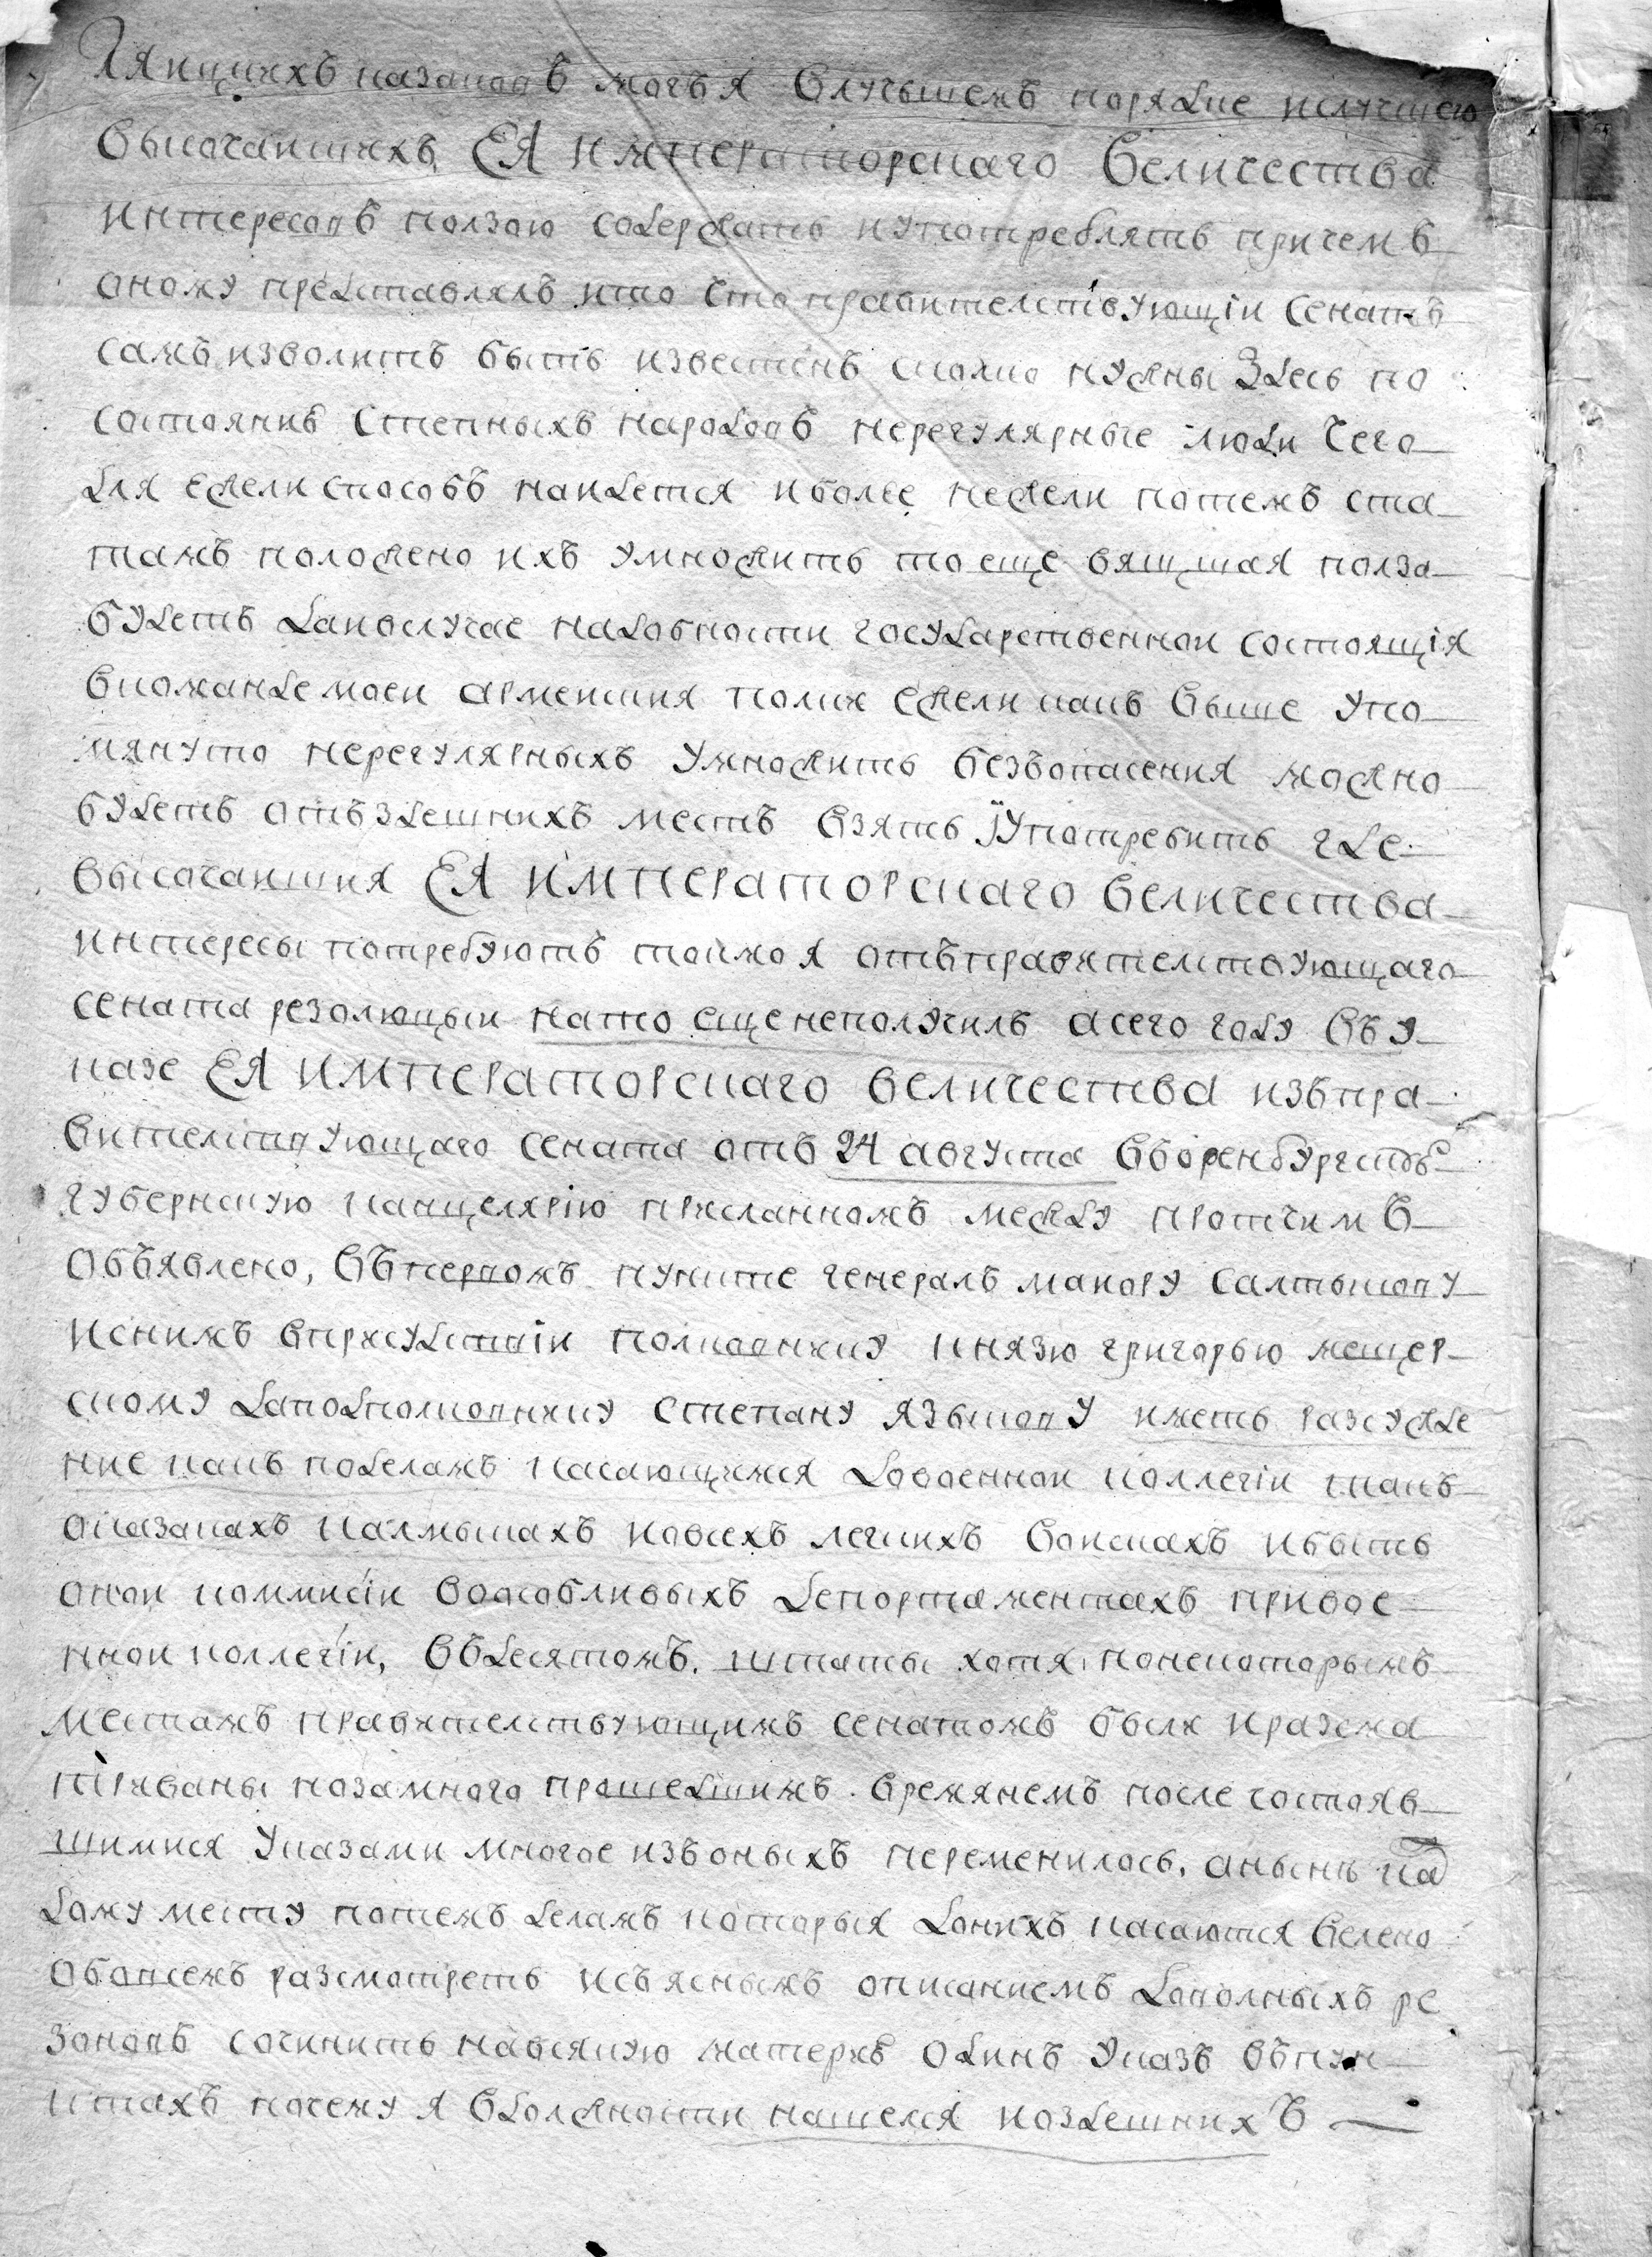 Яицкихъ казаковъ могъ я влучьшемъ порядке илучшею
высочаишихъ ЕЯ императорскаго величества
интересовъ ползою содержать иупотреблять причемъ
оному представлялъ што сто правителствующїи сенатъ
самъ изволитъ быть известенъ сколко нужны здесь по
состоянию степныхъ народовъ нерегулярные люди чего
для ежели способъ наидется иболее нежели потемъ шта
тамъ положено ихъ умножить то еще вящшая полза
будетъ даповслучае надобности государственнои состоящїя
вкоманде моеи арменския полки ежели какъ выше упо
мянуто нерегулярныхъ умножить безъопасения можно
будетъ отъ здешнихъ местъ взять їупотребить где
высочаишия ЕЯ императорскаго величества
интересы потребуютъ токмо я отъправителствующаго
сената резолюцыи нато еще неполучилъ асего году въ у
казе ЕЯ императорскаго величества изъпра
вителствующаго сената отъ 24 августа въоренбургскую
губернскую канцелярїю присланномъ между протчимъ
объявлено, въпервомъ пункте генералъ маиору салтыкову
иснимъ вприсудствїи полковнику князю григорью мещер
скому даподполковнику степану языкову иметь разсужде
ние какъ поделамъ касающимся довоеннои коллегїи такъ
оказакахъ калмыкахъ ивсехъ легкихъ воискахъ ибыть
онои коммисїи воособливыхъ депортаментахъ привое
ннои коллегїи, въдесятомъ. штаты хотя понекоторымъ
местамъ правителствующимъ сенатомъ были иразсма
триваны нозамного прошедшимъ времянемъ после состояв
шимися указами многое изъоныхъ переменилось, анынъ каж
дому месту потемъ деламъ которыя донихъ касаются велено
обовсемъ разсмотреть исъясныиъ описаниемъ доволныхъ ре
зоновъ сочинить навсякую материю одинъ указъ въпун
ктахъ почему я вдолжности нашелся иоздешнихъ